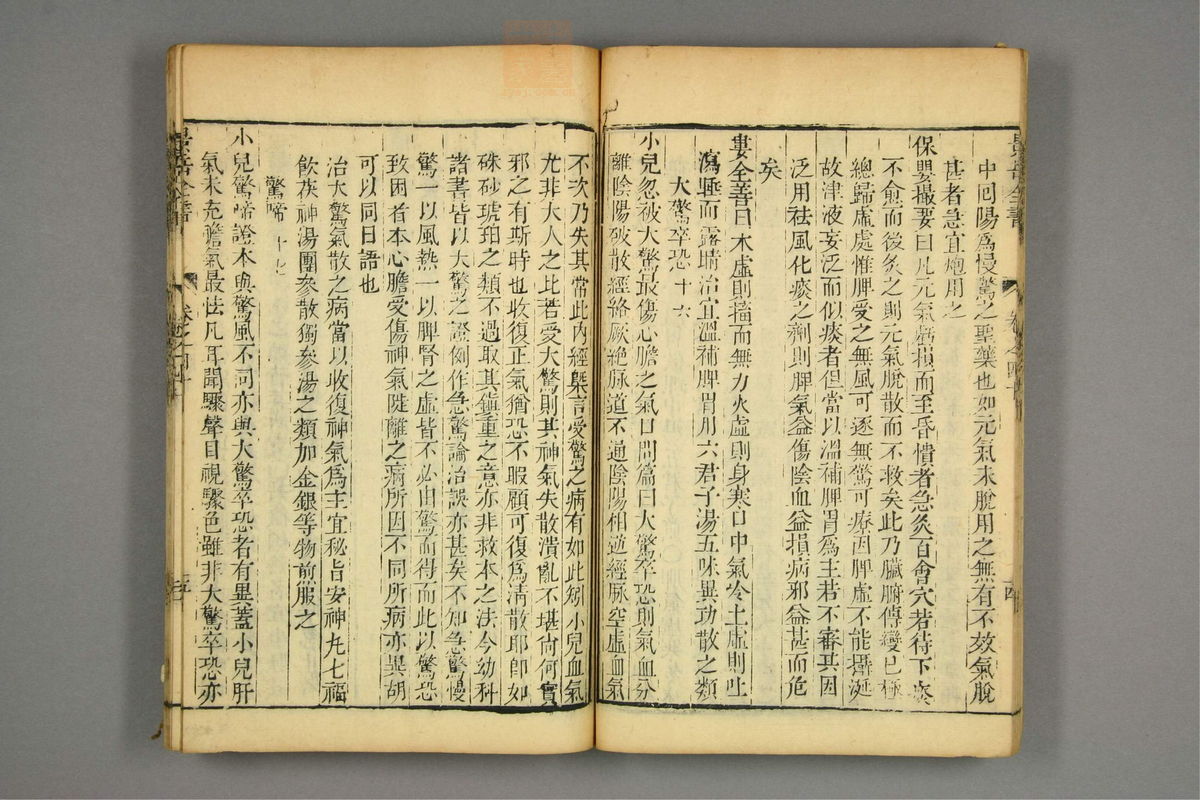 中囘陽爲慢驚之聖藥也如元氣未脫用之無有不效氣脫
甚者急宜炮用之
保嬰撮要曰凡元氣虧損而至昏憒者急灸百會穴若待下痰
不愈而後灸之則元氣脫散而不救矣此乃臟腑傳變已極
總歸虛處惟脾受之無風可逐無驚可療因脾虛不能攝涎
故津液妄泛而似痰者但當以溫補脾胃爲主若不審其因
泛用袪風化痰之劑則脾氣益傷陰血益損病邪益甚而危
矣
婁全善曰木虛則搐而無力火虛則身寒口中氣冷土虛則吐
瀉睡而露睛治宜溫補脾胃用六君子湯五味異功散之類
大驚卒恐十六
小兒忽被大驚最傷心膽之氣口問篇曰大驚卒恐則氣血分
離陰陽破散經絡厥絶脉道不通陰陽相逆經脉空虛血氣
不次乃失其常此內經槩言受驚之病有如此矧小兒血氣
尤非大人之比若受大驚則其神氣失散潰亂不堪尚何實
邪之有斯時也收復正氣猶恐不暇顧可復爲清散耶卽如
硃砂琥珀之類不過取其鎭重之意亦非救本之法今幼科
諸書皆以大驚之證例作急驚論治誤亦甚矣不知急驚慢
驚一以風熱一以脾腎之虛皆不必由驚而得而此以驚恐
致困者本心膽受傷神氣陡離之病所因不同所病亦異胡
可以同日語也
治大驚氣散之病當以收復神氣爲主宜秘旨安神丸七福
飲茯神湯團參散獨參湯之類加金銀等物煎服之
驚啼十七
小兒驚啼證本與驚風不同亦與大驚卒恐者有異蓋小兒肝
氣未充膽氣最怯凡耳聞驟聲目視驟色雖非大驚卒恐亦
景岳全書
卷之四十
四
景岳全書
卷之四十
五